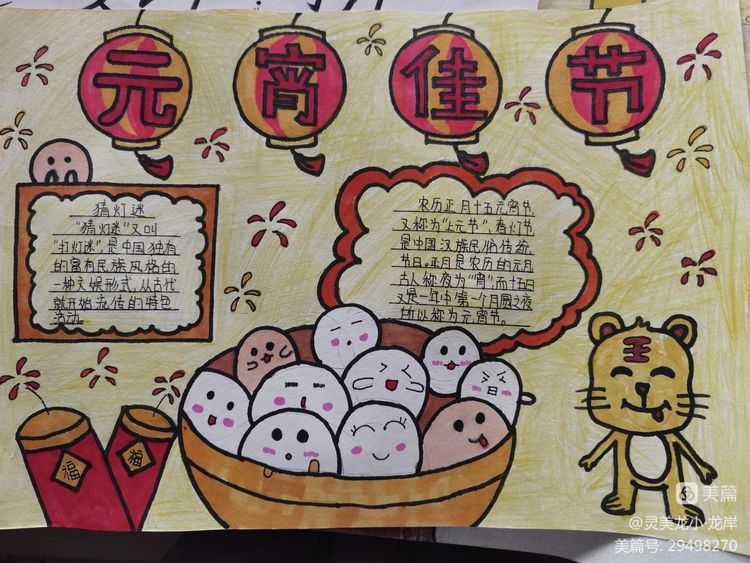 元宵佳节
猜灯迷
“猜灯迷”又叫
“打灯迷”，是中国独有
的富有民族风格的
一种文娱形式，从古代
就开始流传的特色
活动。
农历正月十五元宵节，
又称为“上元节”，春灯节
是中国汉族民俗传统
节日。正月是农历的元月
古人称夜为“宵”，而十五日
又是一年中第一个月圆之夜
所以称为元宵节。
王
福
福
美篇
@灵美龙小 龙岸
美篇号: 29498270